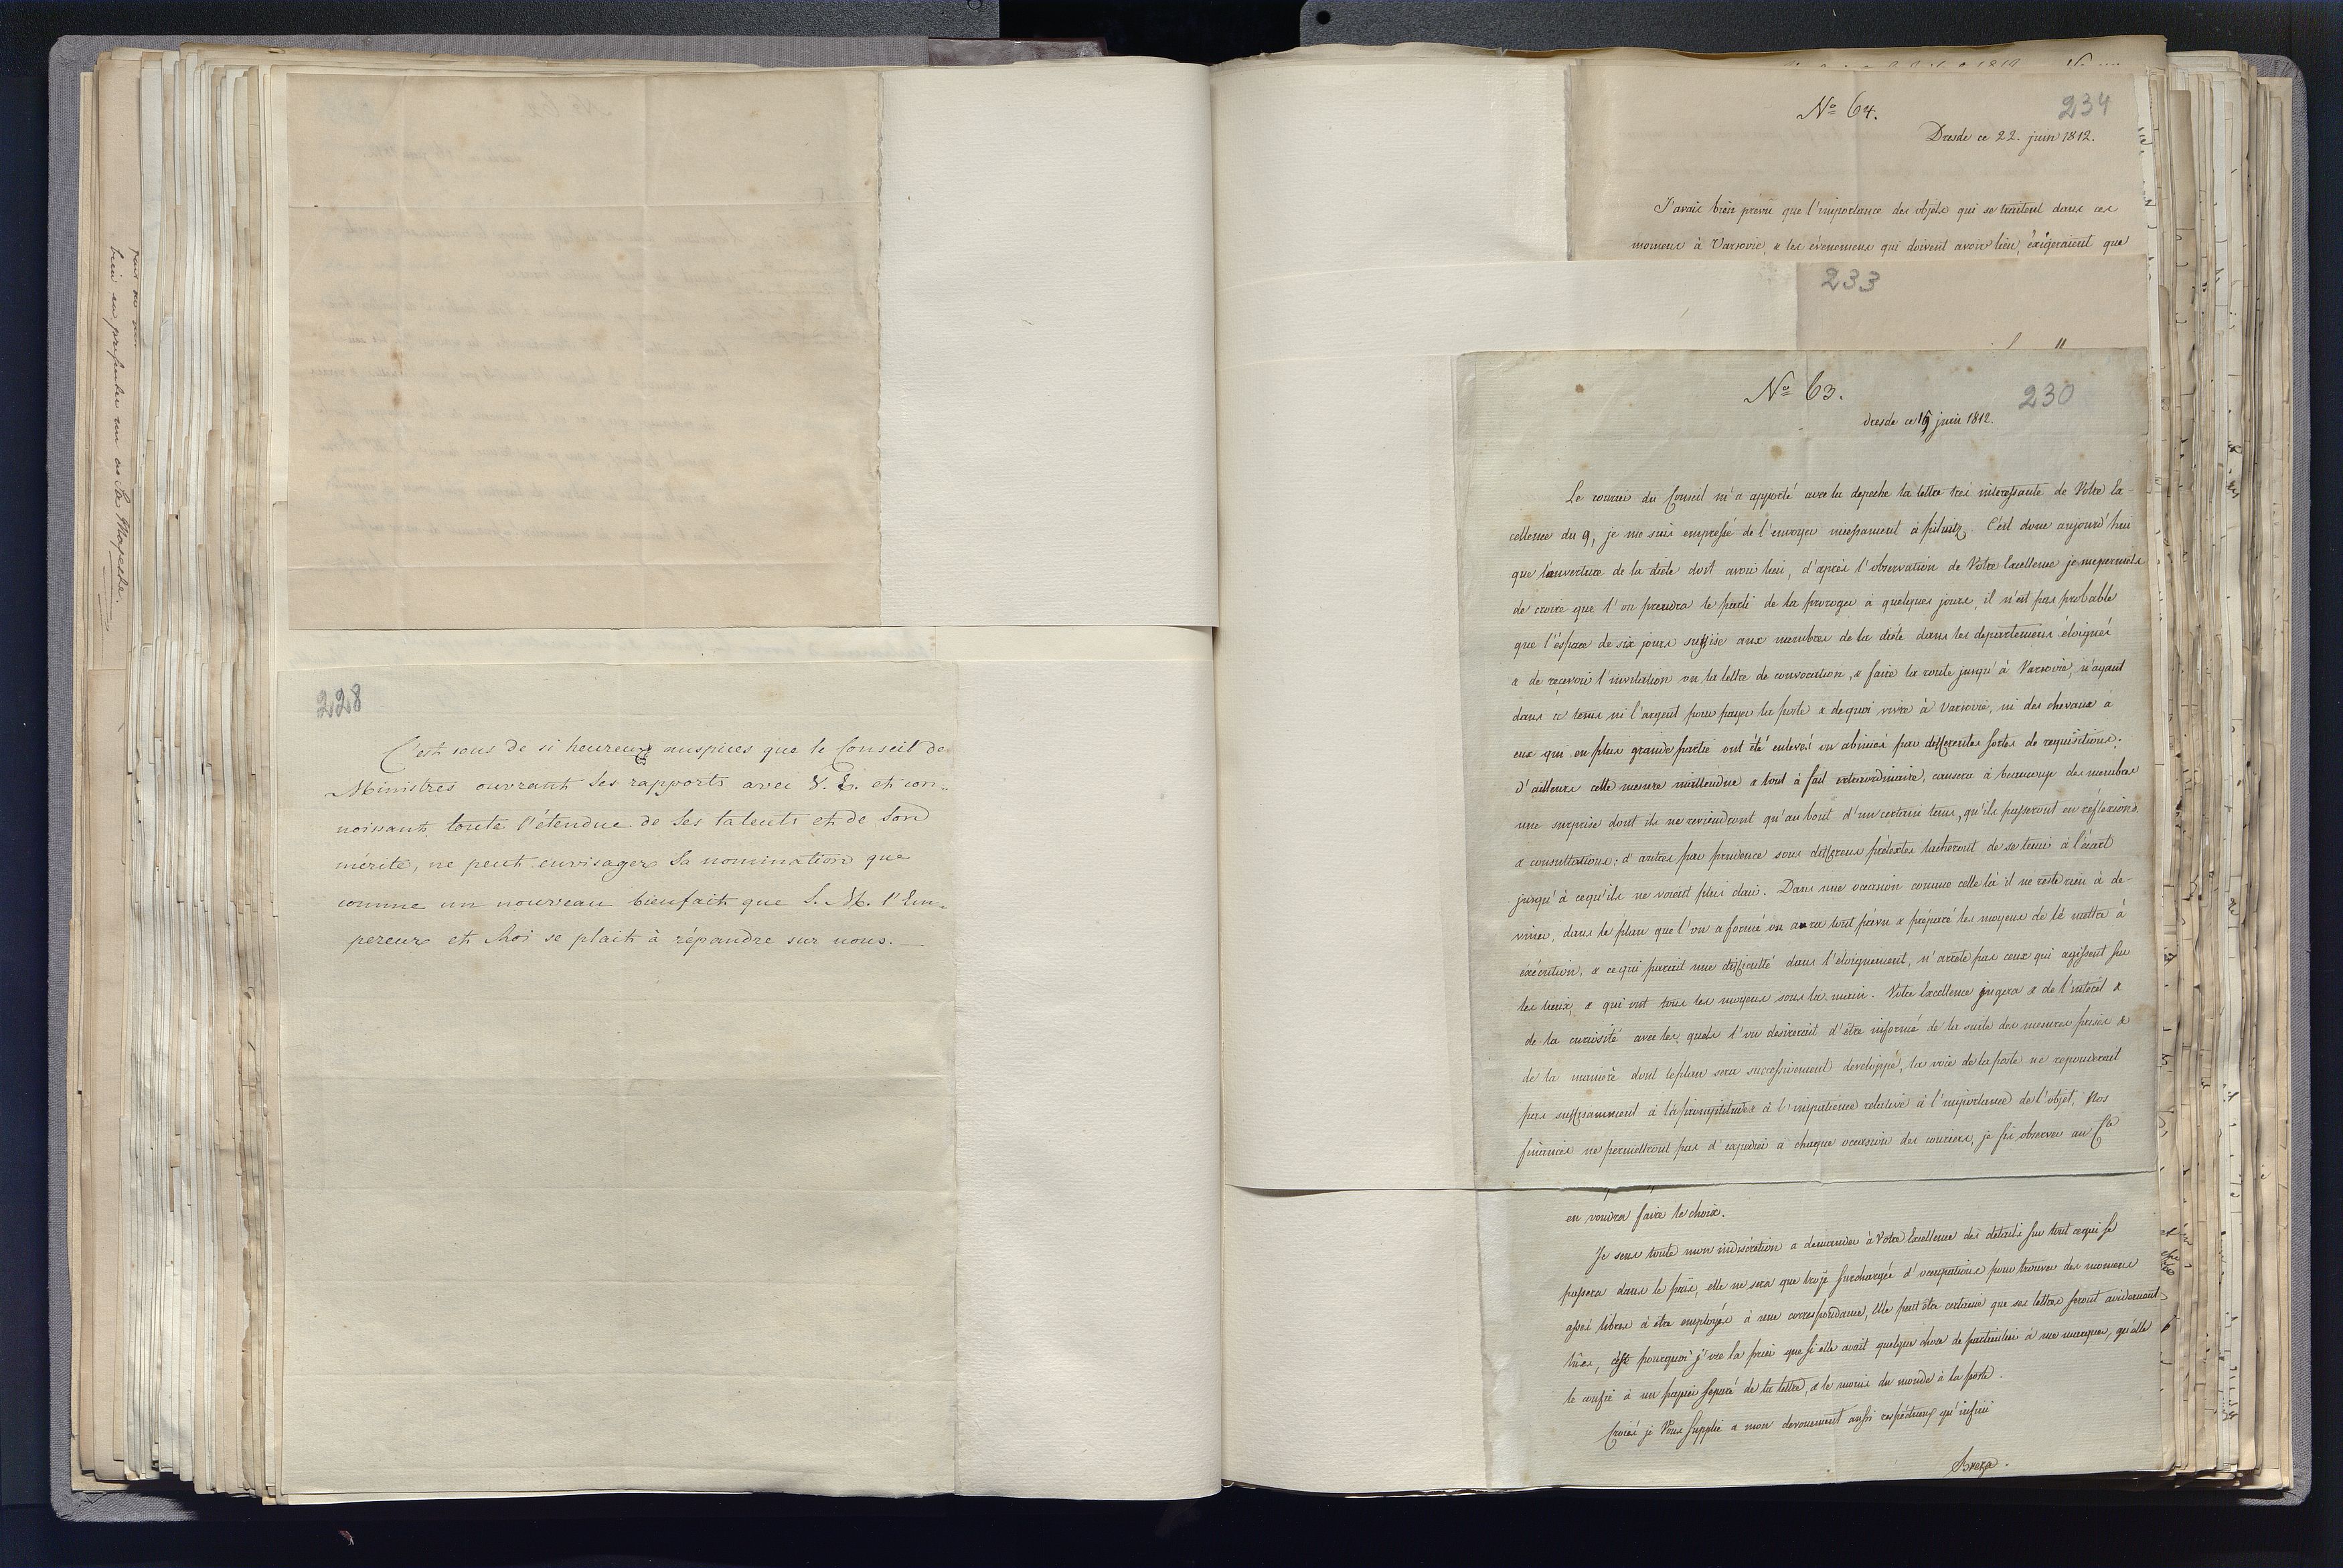 pour me venir
bien en présenter un au Sta Mapeske.
228
C'est sous de si heureux auspices que le Conseil de
Ministres ouvrant ses rapports avec V. E. et con-
noissant toute l'étendue de ses talents et de son
mérite, ne peut envisager sa nomination que
comme un nouveau bienfait que S. M. l'Em-
pereur et Roi se plait à répandre sur nous.
No 64.
234
Dresde ce 22. juin 1812.
J'avais bien prevu que l'importance des objets qui se traitent dans ces
momens à Varsovie, & les évenemens qui doivent avoir lieu, éxigeraient que
233
No 63.
230
dresde ce 15 juin 1812.
Le courier du Conseil m'a apporté avec la depeche la lettre très interessante de Votre Ex-
cellence du 9, je me suis empressé de l'envoyer incessament à pilnitz. C'est donc aujourd'hui
que l'ouverture de la diète doit avoir lieu, d'après l'observation de Votre Excellence je me permets
de croire que l'on prendra le parti de la proroger à quelques jours, il n'est pas probable
que l'éspace de six jours suffise aux membres de la diète dans les departemens éloignés
& de recevoir l'invitation ou la lettre de convocation, & faire la route jusqu'à Varsovie, n'ayant
dans ce tems ni l'argent pour payer la poste & dequoi vivre à Varsovie, ni des chevaux à
eux qui en plus grande partie ont été enlevés ou abimés par differentes sortes de requisitions;
d'ailleurs cette mesure inattendue & tout à fait extraordinaire, causera à beaucoup des membres
une surprise dont ils ne reviendront qu'au bout d'un certain tems, qu'ils passeront en réflexions
& consultations: d'autres par prudence sous differens prétextes tacheront de se tenir à l'écart
jusqu'à cequ'ils ne voient plus clair. Dans une occasion comme celle là il ne reste rien à de-
viner, dans le plan que l'on a formé on aura tout prévu & préparé les moyens de le mettre à
éxécution, & ce qui parait une difficulté dans l'éloignement, n'arrete pas ceux qui agissent sur
les lieux, & qui ont tous les moyens sous la main. Votre Excellence jugera & de l'intérèt &
de la curiosité avec les quels l'on desirerait d'être informé de la suite des mesures prises &
de la manière dont le plan sera successivement developpé, la voie de la poste ne reponderait
pas suffisamment à la promptitude & à l'impatience relative à l'importance de l'objet, Nos
finances ne permettront pas d'expedier à chaque occasion des couriers, je fis observer au Cte
en voudra faire le choix.
Je sens toute mon indiscrétion a demander à Votre Excellence des détails sur tout cequi se
passera dans le païs, elle ne sera que trop surchargée d'occupations pour trouver des momens
assés libres à etre employés à une correspondance, Elle peut être certaine que ses lettres seront avidement
lües, c'est pourquoi j'ose la prier que si elle avait quelque chose de particulier à me marquer, qu'elle
le confie à un papier separé de la lettre, & le moins du monde à la poste.
Croiés je Vous supplie a mon devouement aussi respectueux qu'infini
Breza.